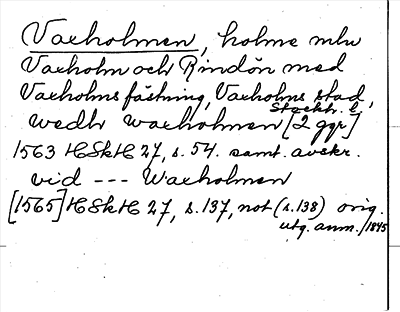 Vaxholmen, holme mlu
Vaxholm och Rindön med
Vaxholms fästning, Vaxholms stad,
Stockh. l.
wedh waxholmen [2 ggr]
1563 HSkH 27, s. 54. samt. avskr.
vid --- Waxholmen
[1565] HSkH 27, s. 137, not (s. 138) orig.
utg. anm. /1845